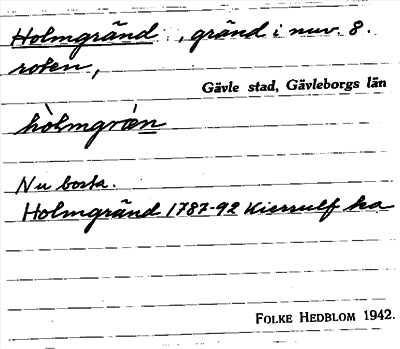 Holmgränd, gränd i nuv. 8.
roten,
Gävle stad, Gävleborgs län
hòlmgrén
Nu borta.
Holmgränd 1787-92 Kierrulf ka
FOLKE HEDBLOM 1942.